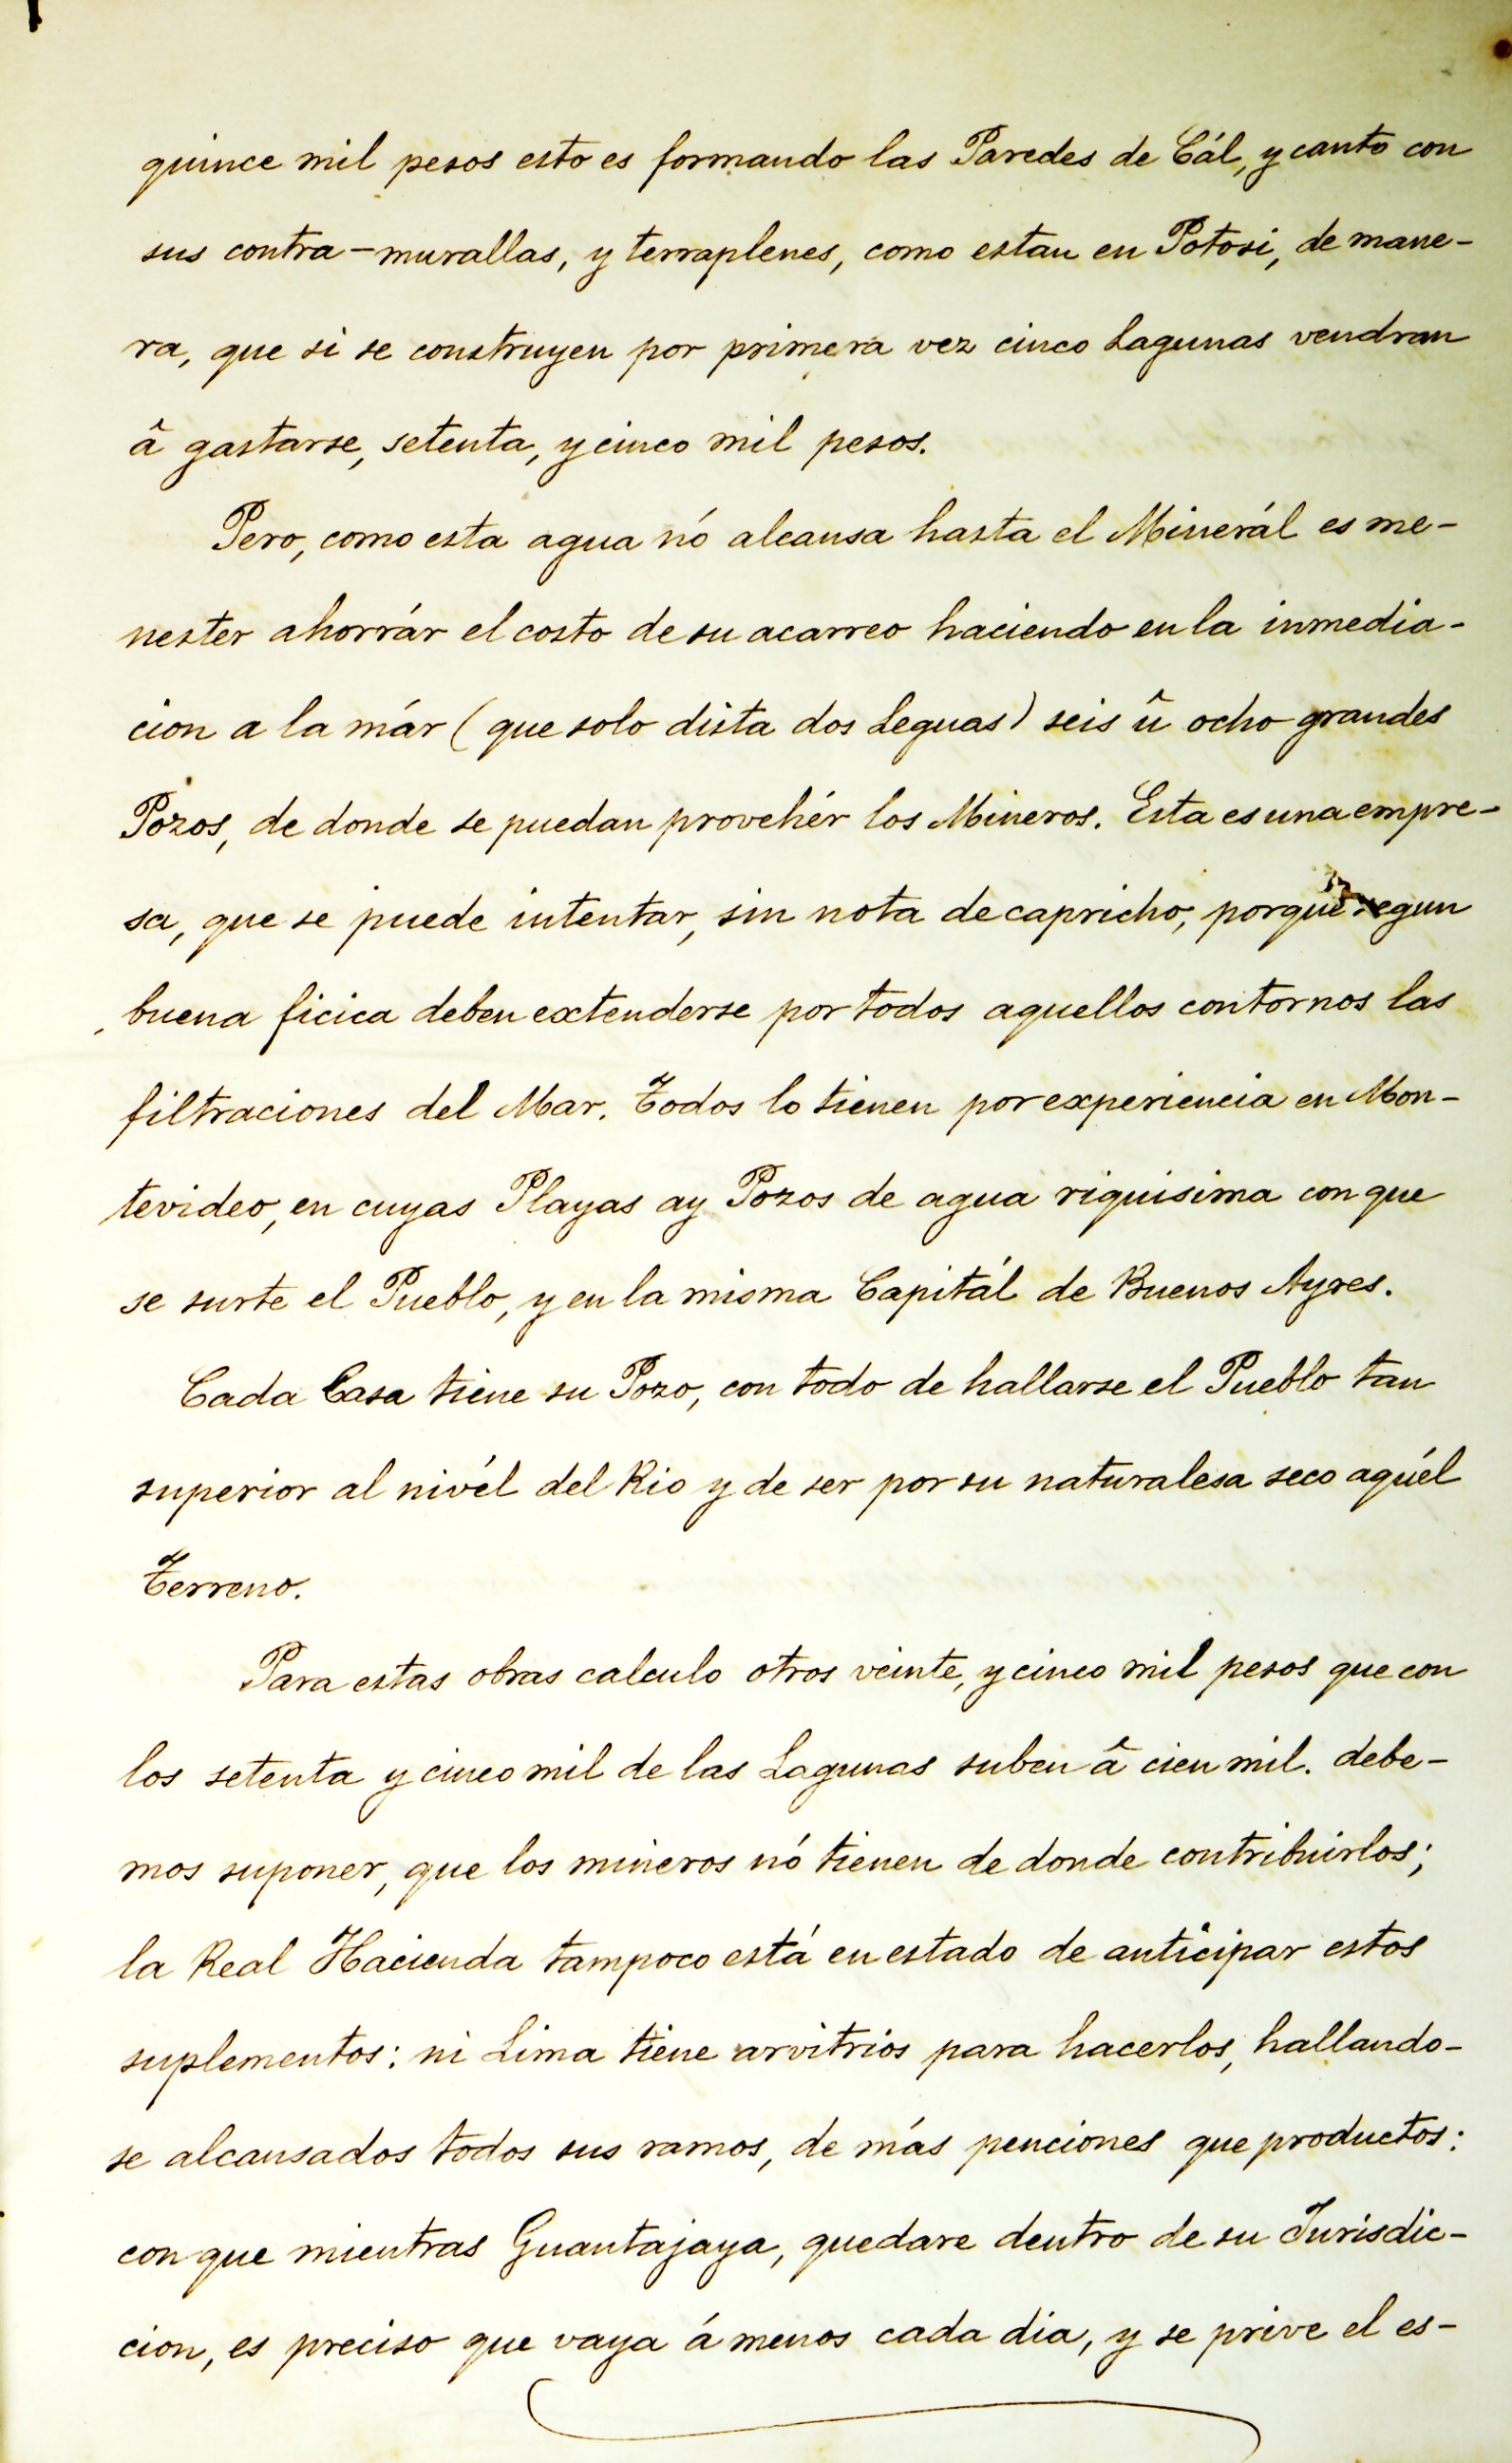 quince mil pesos esto es formando las Paredes de Cál, y canto con
sus contra-murallas, y terraplenes, como estan en Potosi, de mane-
ra, que si se construyen por primera vez cinco Lagunas vendran
â gastarse, setenta, y cinco mil pesos.
Pero, como esta agua nó alcansa hasta el Minerál es me-
nester ahorrár el costo de su acarreo haciendo en la inmedia-
cion a la már (que solo dista dos Leguas) seis û ocho grandes
Pozos, de donde se puedan provehér los Mineros. Esta es una empre-
sa, que se puede intentar, sin nota de capricho, porque segun
buena ficica deben extenderse por todos aquellos contornos las
filtraciones del Mar. Todos lo tienen por experiencia en Mon-
tevideo, en cuyas Playas ay Pozos de agua riquisima con que
se surte el Pueblo, y en la misma Capitál de Buenos Ayres.
Cada Casa tiene su Pozo, con todo de hallarse el Pueblo tan
superior al nivél del Rio y de ser por su naturalesa seco aquél
Terreno.
Para estas obras calculo otros veinte, y cinco mil pesos que con
los setenta y cinco mil de las Lagunas suben â cien mil. debe-
mos suponer, que los mineros nó tienen de donde contribuirlos;
la Real Hacienda tampoco está en estado de anticipar estos
suplementos: ni Lima tiene arvitrios para hacerlos, hallando-
se alcansados todos sus ramos, de más penciones que productos:
con que mientras Guantajaya, quedare dentro de su Jurisdic-
cion, es preciso que vaya á menos cada dia, y se prive el es-